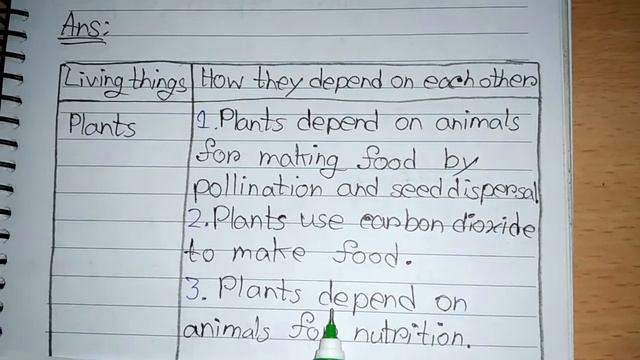 Ans:
Living things How they depend on each other
Plants 1. Plants depend on animals
for making food by
pollination and seed dispersal
2. Plants use carbon dioxide
to make food.
3. Plants depend on
animals for nutrition.